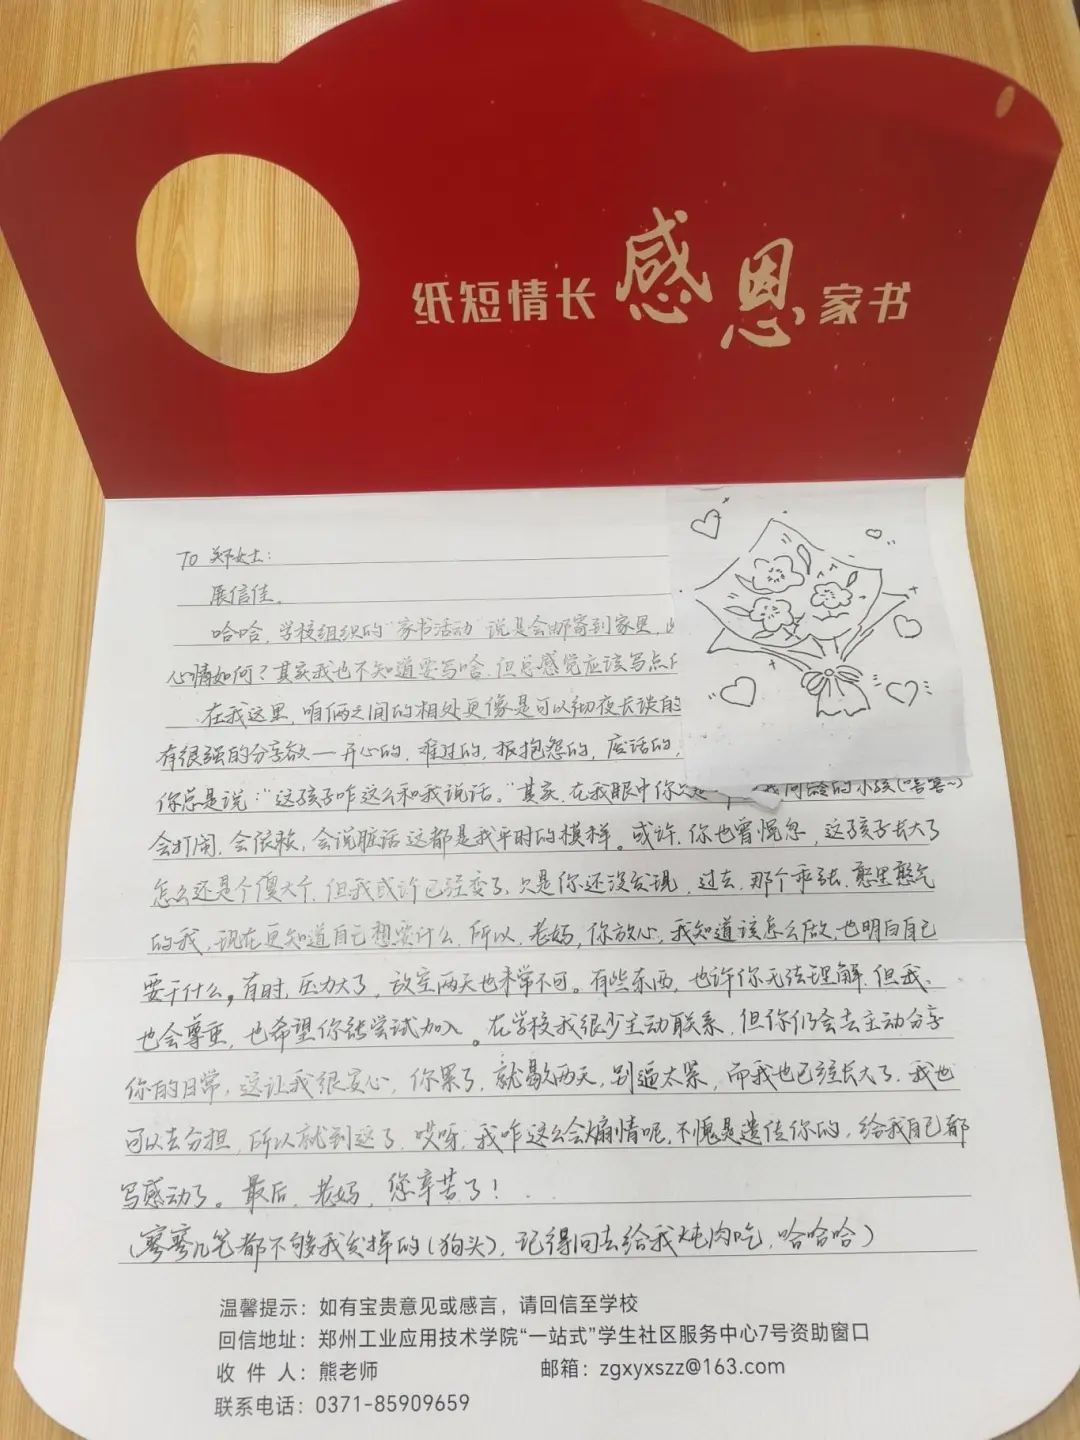 纸短情长感恩家书
TO 郑女士:
展信佳。
哈哈,学校组织的“家书活动”说是会邮寄到家里,
心情如何?其实我也不知道要写啥,但总感觉应该写点
在我这里,咱俩之间的相处更像是可以彻夜长谈的
有很强的分享欲—开心的,难过的,报抱怨的,废话的,
你总是说:“这孩子咋这么和我说话。”其实,在我眼中你 同龄的小孩(嘻嘻~)
会打闹,会依赖,会说脏话这都是我平时的模样。或许,你也曾恍忽,这孩子长大了
怎么还是个傻大个,但我或许已经变了,只是你还没发现,过去,那个乖张,憨里憨气
的我,现在更知道自己想要什么,所以,老妈,你放心,我知道该怎么做,也明白自己
要干什么。有时,压力大了,放空两天也未尝不可。有些东西,也许你无法理解,但我、
也会尊重,也希望你能尝试加入。在学校我很少主动联系,但你仍会去主动分享
你的日常,这让我很安心,你累了,就歇两天,别逼太紧,而我也已经长大了,我也
可以去分担,所以就到这了,哎呀,我咋这么会煽情呢,不愧是遗传你的,给我自己都
写感动了。最后,老妈,您辛苦了!
(寥寥几笔都不够我发挥的(狗头),记得回去给我炖肉吃,哈哈哈)
温馨提示:如有宝贵意见或感言,请回信至学校
回信地址:郑州工业应用技术学院“一站式”学生社区服务中心7号资助窗口
收 件 人:熊老师 邮箱:zgxyxszz@163.com
联系电话:0371-85909659